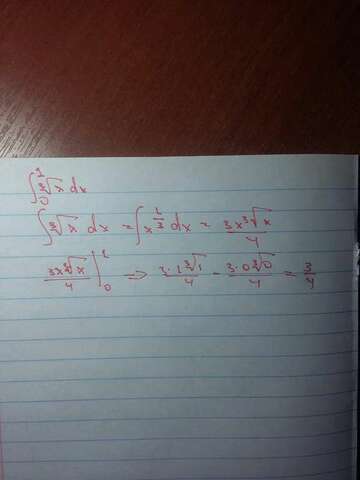 ∫₀¹ ∛x dx
∫ ∛x dx = ∫ x^(1/3) dx = 3x∛x/4
3x∛x/4 |₀¹ ⇒ 3·1∛1/4 - 3·0∛0/4 = 3/4